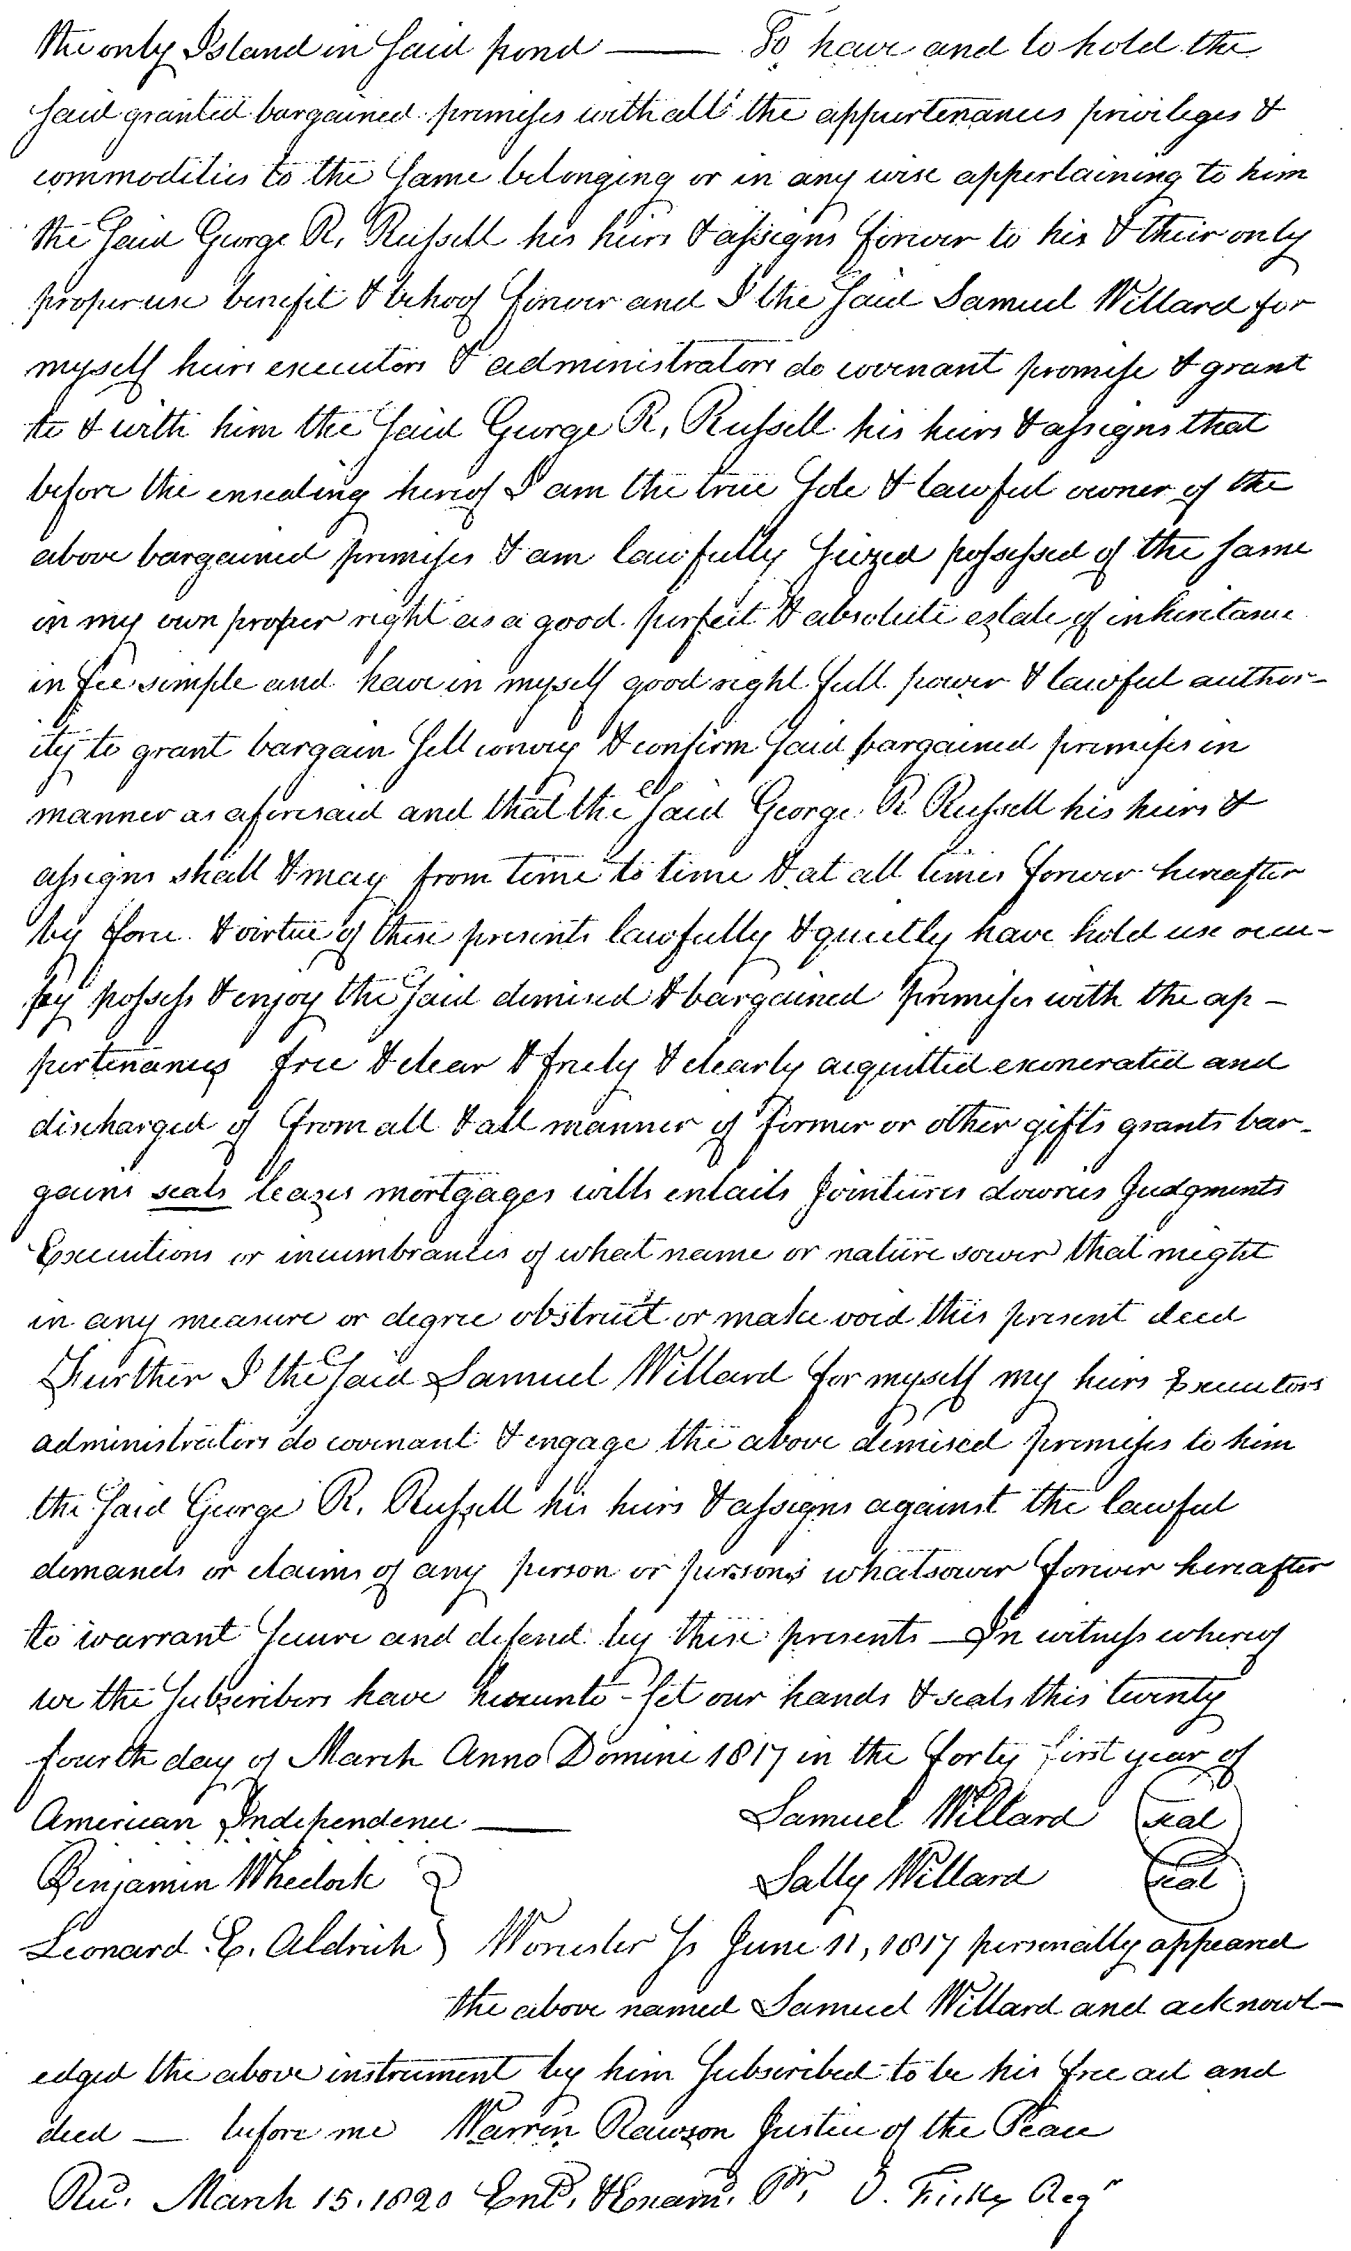 the only Island in said pond —— To have and to hold the
said granted bargained premises with all the appurtenances privileges &
commodities to the same belonging or in any wise appertaining to him
the said George R, Russell his heirs & assigns forever to his & their only
proper use benefit & behoof forever and I the said Samuel Willard for
myself heirs executors & administrators do covenant promise & grant
to & with him the said George R, Russell his heirs & assigns that
before the ensealing hereof I am the true sole & lawful owner of the
above bargained premises & am lawfully siezed possessed of the same
in my own proper right as a good perfect & absolute estate of inheritance
in fee simple and have in myself good right full power & lawful author-
ity to grant bargain sell convey & confirm said bargained premises in
manner as aforesaid and that the said George R Russell his heirs &
assigns shall & may from time to time & at all times forever hereafter
by force & virtue of these presents lawfully & quietly have hold use occu-
py possess & enjoy the said demised & bargained premises with the ap-
pertenances free & clear & freely & clearly acquitted exonerated and
discharged of from all & all manner of former or other gifts grants bar-
gains seals leases mortgages wills entails jointures dowries Judgments
Executions or incumbrances of what name or nature soever that might
in any measure or degree obstruct or make void this present deed
Further I the said Samuel Willard for myself my heirs Executors
administrators do covenant & engage the above demised premises to him
the said George R. Russell his heirs & assigns against the lawful
demands or claims of any person or persons whatsoever forever hereafter
to warrant secure and defend by these presents — In witness whereof
we the subscribers have hereunto set our hands & seals this twenty
fourth day of March Anno Domini 1817 in the forty first year of
American Independence —— Samuel Willard seal
Benjamin Wheelock } Sally Willard seal
Leonard E. Aldrich } Worcester Ss June 11, 1817 personally appeared
the above named Samuel Willard and acknowl-
edged the above instrument by him subscribed to be his free act and
deed — before me Warren Rawson Justice of the Peace
Rec. March 15. 1820 Entd. & Examd. Pr. Regr